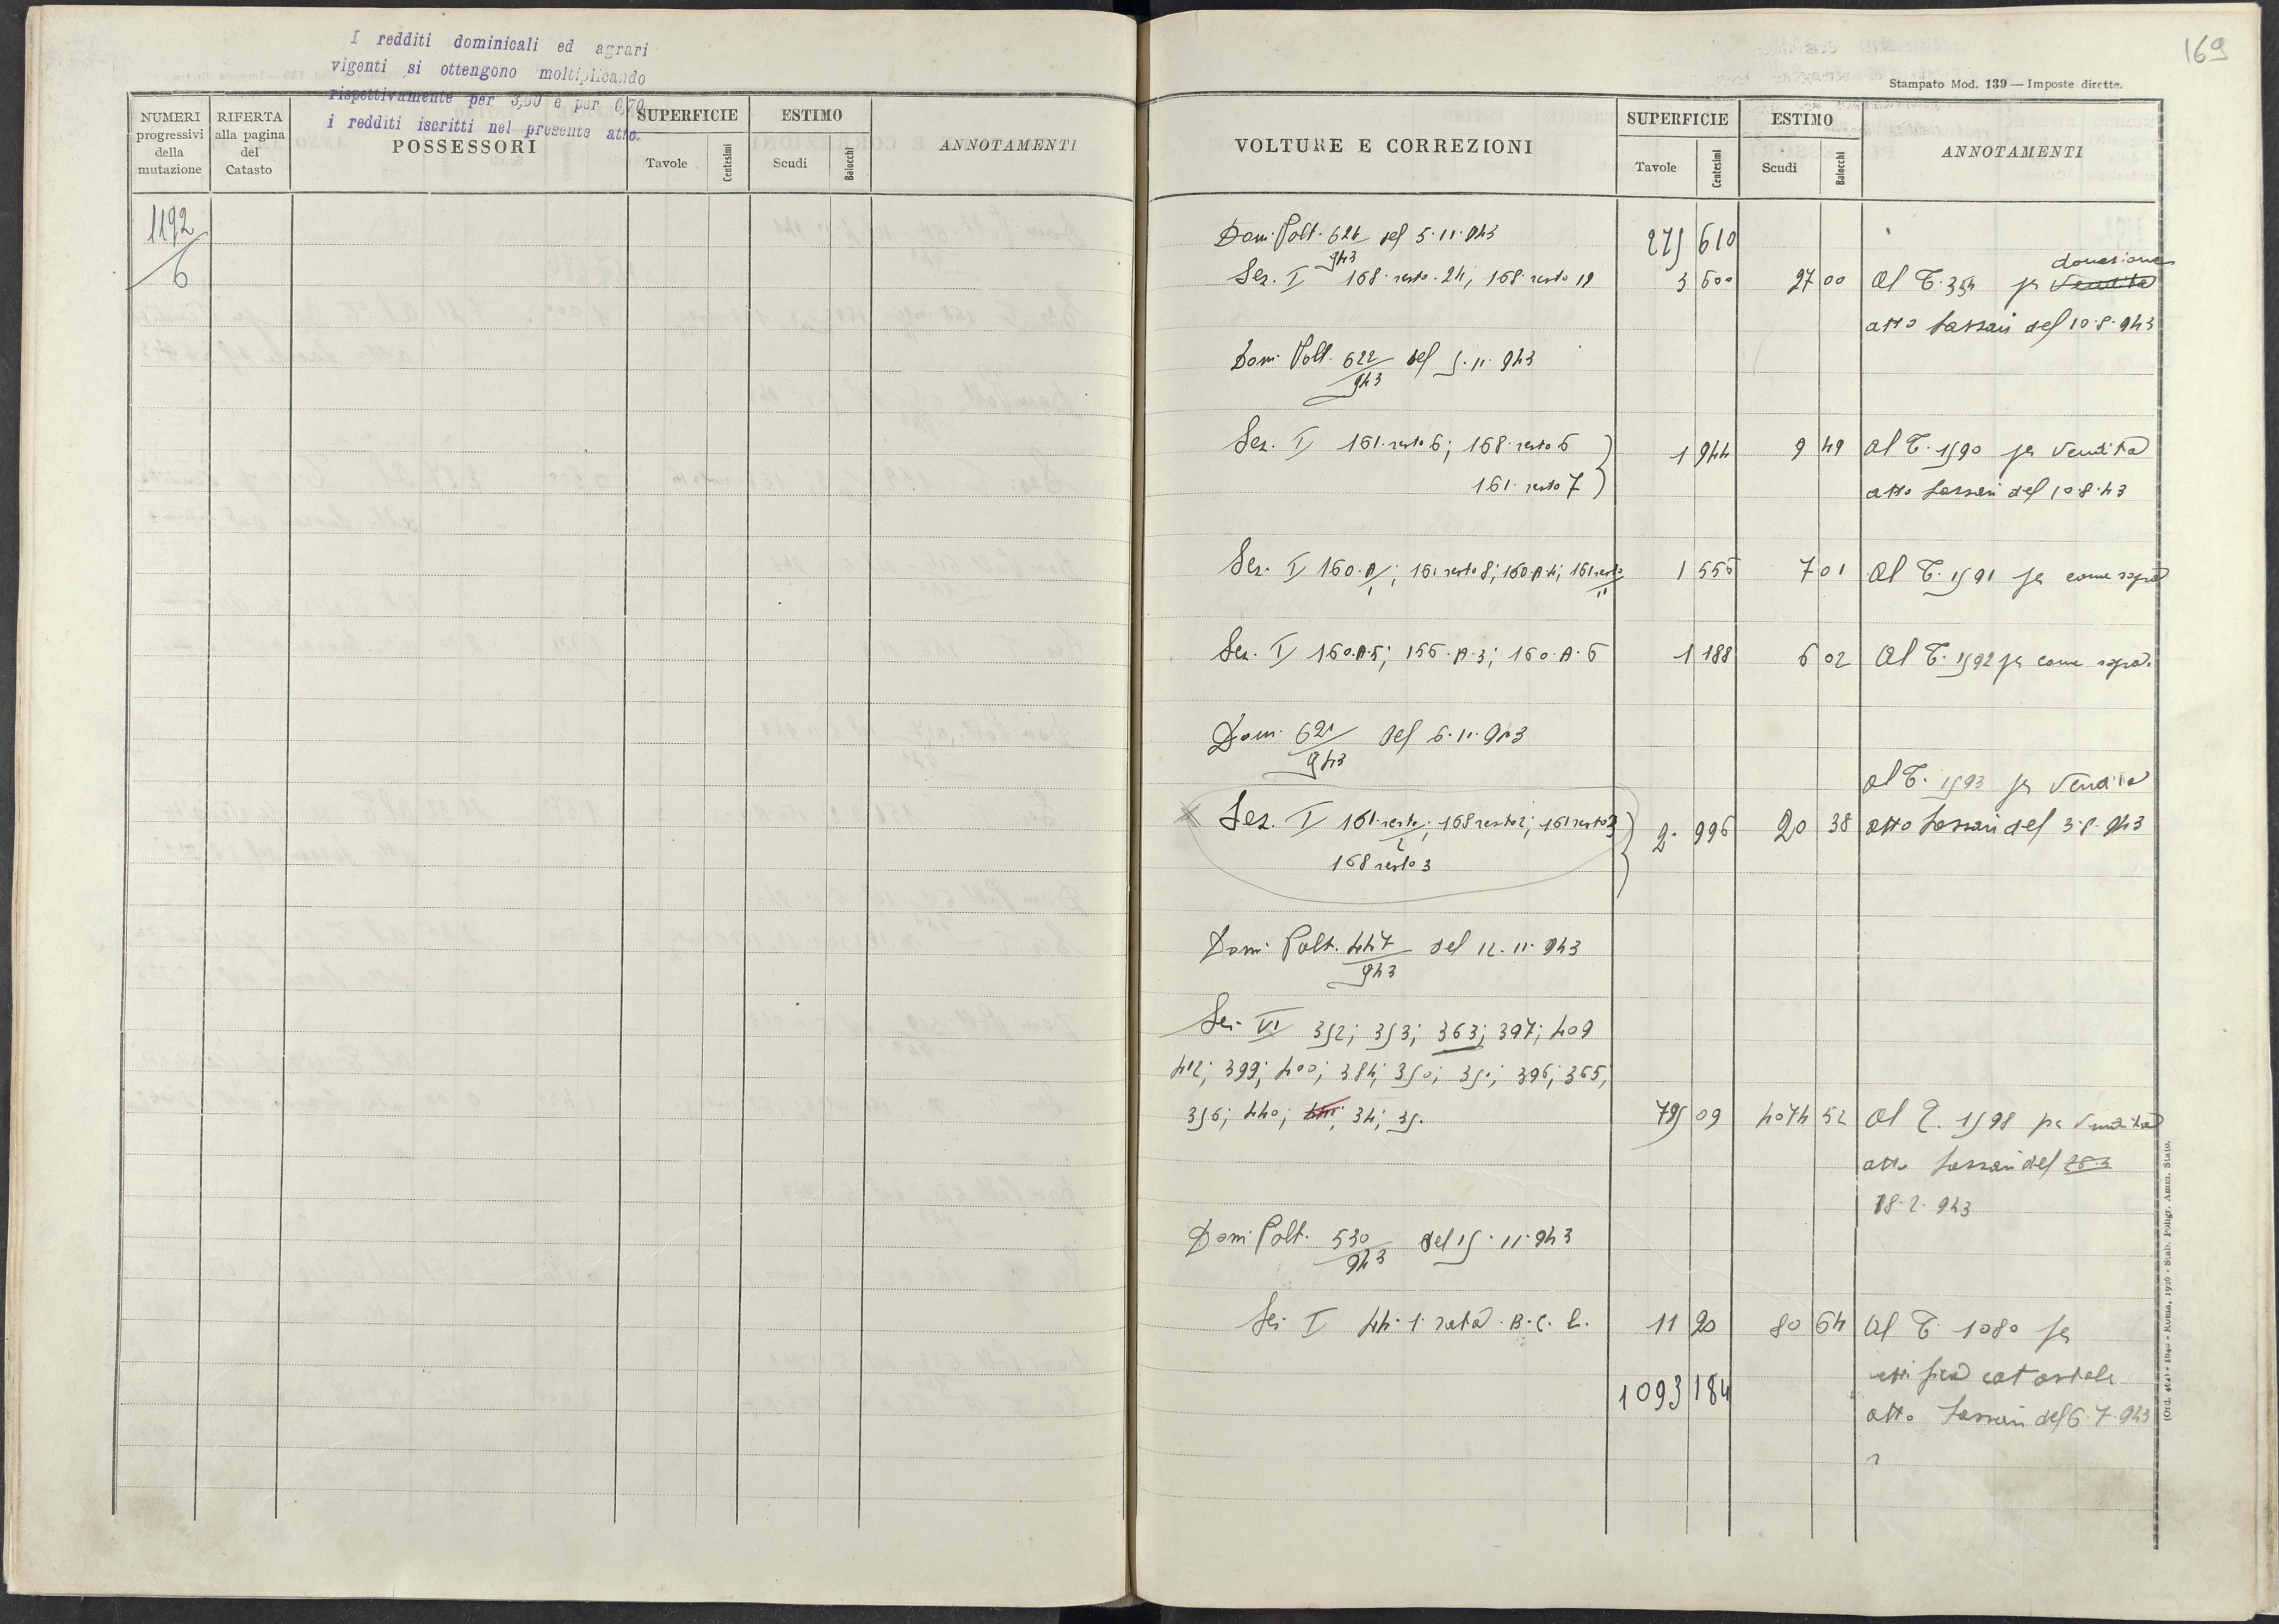 I redditi dominicali ed agrari
vigenti si ottengono moltiplicando
rispettivamente per 3,60 e per 0,70
i redditi iscritti nel presente atto.
NUMERI progressivi della mutazione
RIFERTA alla pagina del Catasto
POSSESSORI
SUPERFICIE
Tavole
Centesimi
ESTIMO
Scudi
Baiocchi
ANNOTAMENTI
1192
6
169
Stampato Mod. 139 — Imposte dirette.
VOLTURE E CORREZIONI
SUPERFICIE
Tavole
Centesimi
ESTIMO
Scudi
Baiocchi
ANNOTAMENTI
Dom. Volt. 624/943 del 5.11.943 275 610
donazione
Sez. I 168 resto 24; 168 resto 19 3 600 27 00 Al T. 354 per vendita
atto Sassari del 10.8.943
Dom. Volt. 622/943 del 5.11.943
Sez. I 161 resto 6; 168 resto 6 1 944 9 49 Al T. 1590 per vendita
161 resto 7 atto Sassari del 10.8.43
Sez. I 160.A/1; 161 resto 8; 160.A.4; 161 resto 11 1 556 7 01 Al T. 1591 per come sopra
Sez. I 160.A.5; 156.A.3; 160.A.6 1 188 6 02 Al T. 1592 per come sopra
Dom. 621/943 del 6.11.943
Al T. 1593 per vendita
Sez. I 161 resto 2; 168 resto 2; 161 resto 3 2 996 20 38 atto Sassari del 3.8.943
168 resto 3
Dom. Volt. 447/943 del 12.11.943
Sez. VI 352; 353; 363; 397; 409
412; 399; 400; 384; 350; 351; 396; 365;
356; 440; 441; 34; 35. 795 09 4074 52 Al T. 1598 per vendita
atto Sassari del
18.2.943
Dom. Volt. 530/943 del 15.11.943
Sez. I 44.1 rata B.C.L. 11 20 80 64 Al T. 1080 per
rettifica catastale
1093 184
atto Sassari del 6.7.943
(Ord. 464) - 1940 - Roma, 1926 - Stab. Poligr. Amm. Stato.